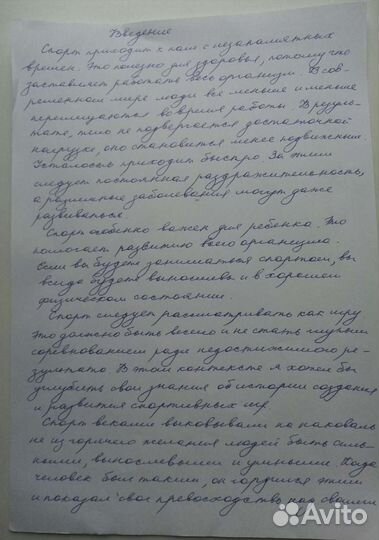 Введение
Спорт приходит к нам с незапамятных
времен. Это полезно для здоровья, потому что
заставляет работать весь организм. В сов-
ременном мире люди все меньше и меньше
перемещаются во время работы. В резуль-
тате, тело не подвергается достаточной
нагрузке, оно становится менее подвижным.
Усталость приходит быстро. За этим
следует постоянная раздражительность,
а различные заболевания могут даже
развиваться.
Спорт особенно важен для ребенка. Это
помогает развитию всего организма.
Если вы будете заниматься спортом, вы
всегда будете выносливы и в хорошем
физическом состоянии.
Спорт следует рассматривать как игру
Это должно быть весело и не стать глупым
соревнованием ради недостижимого ре-
зультата. В этом контексте я хотел бы
углубить свои знания об истории создания
и развития спортивных игр.
Спорт веками выковывали на наковаль
не из горячего желания людей быть силь-
ными, выносливыми и умными. Когда
человек был таким, он гордился этим
и показал свое превосходство над своими
Avito